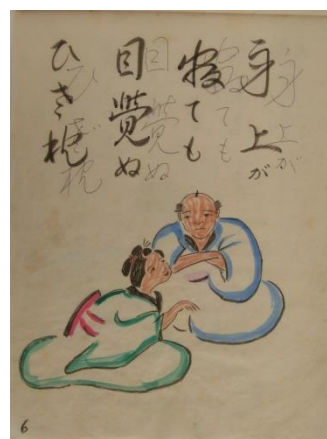 身上が
ても
目覺ぬ
ひざ枕
6